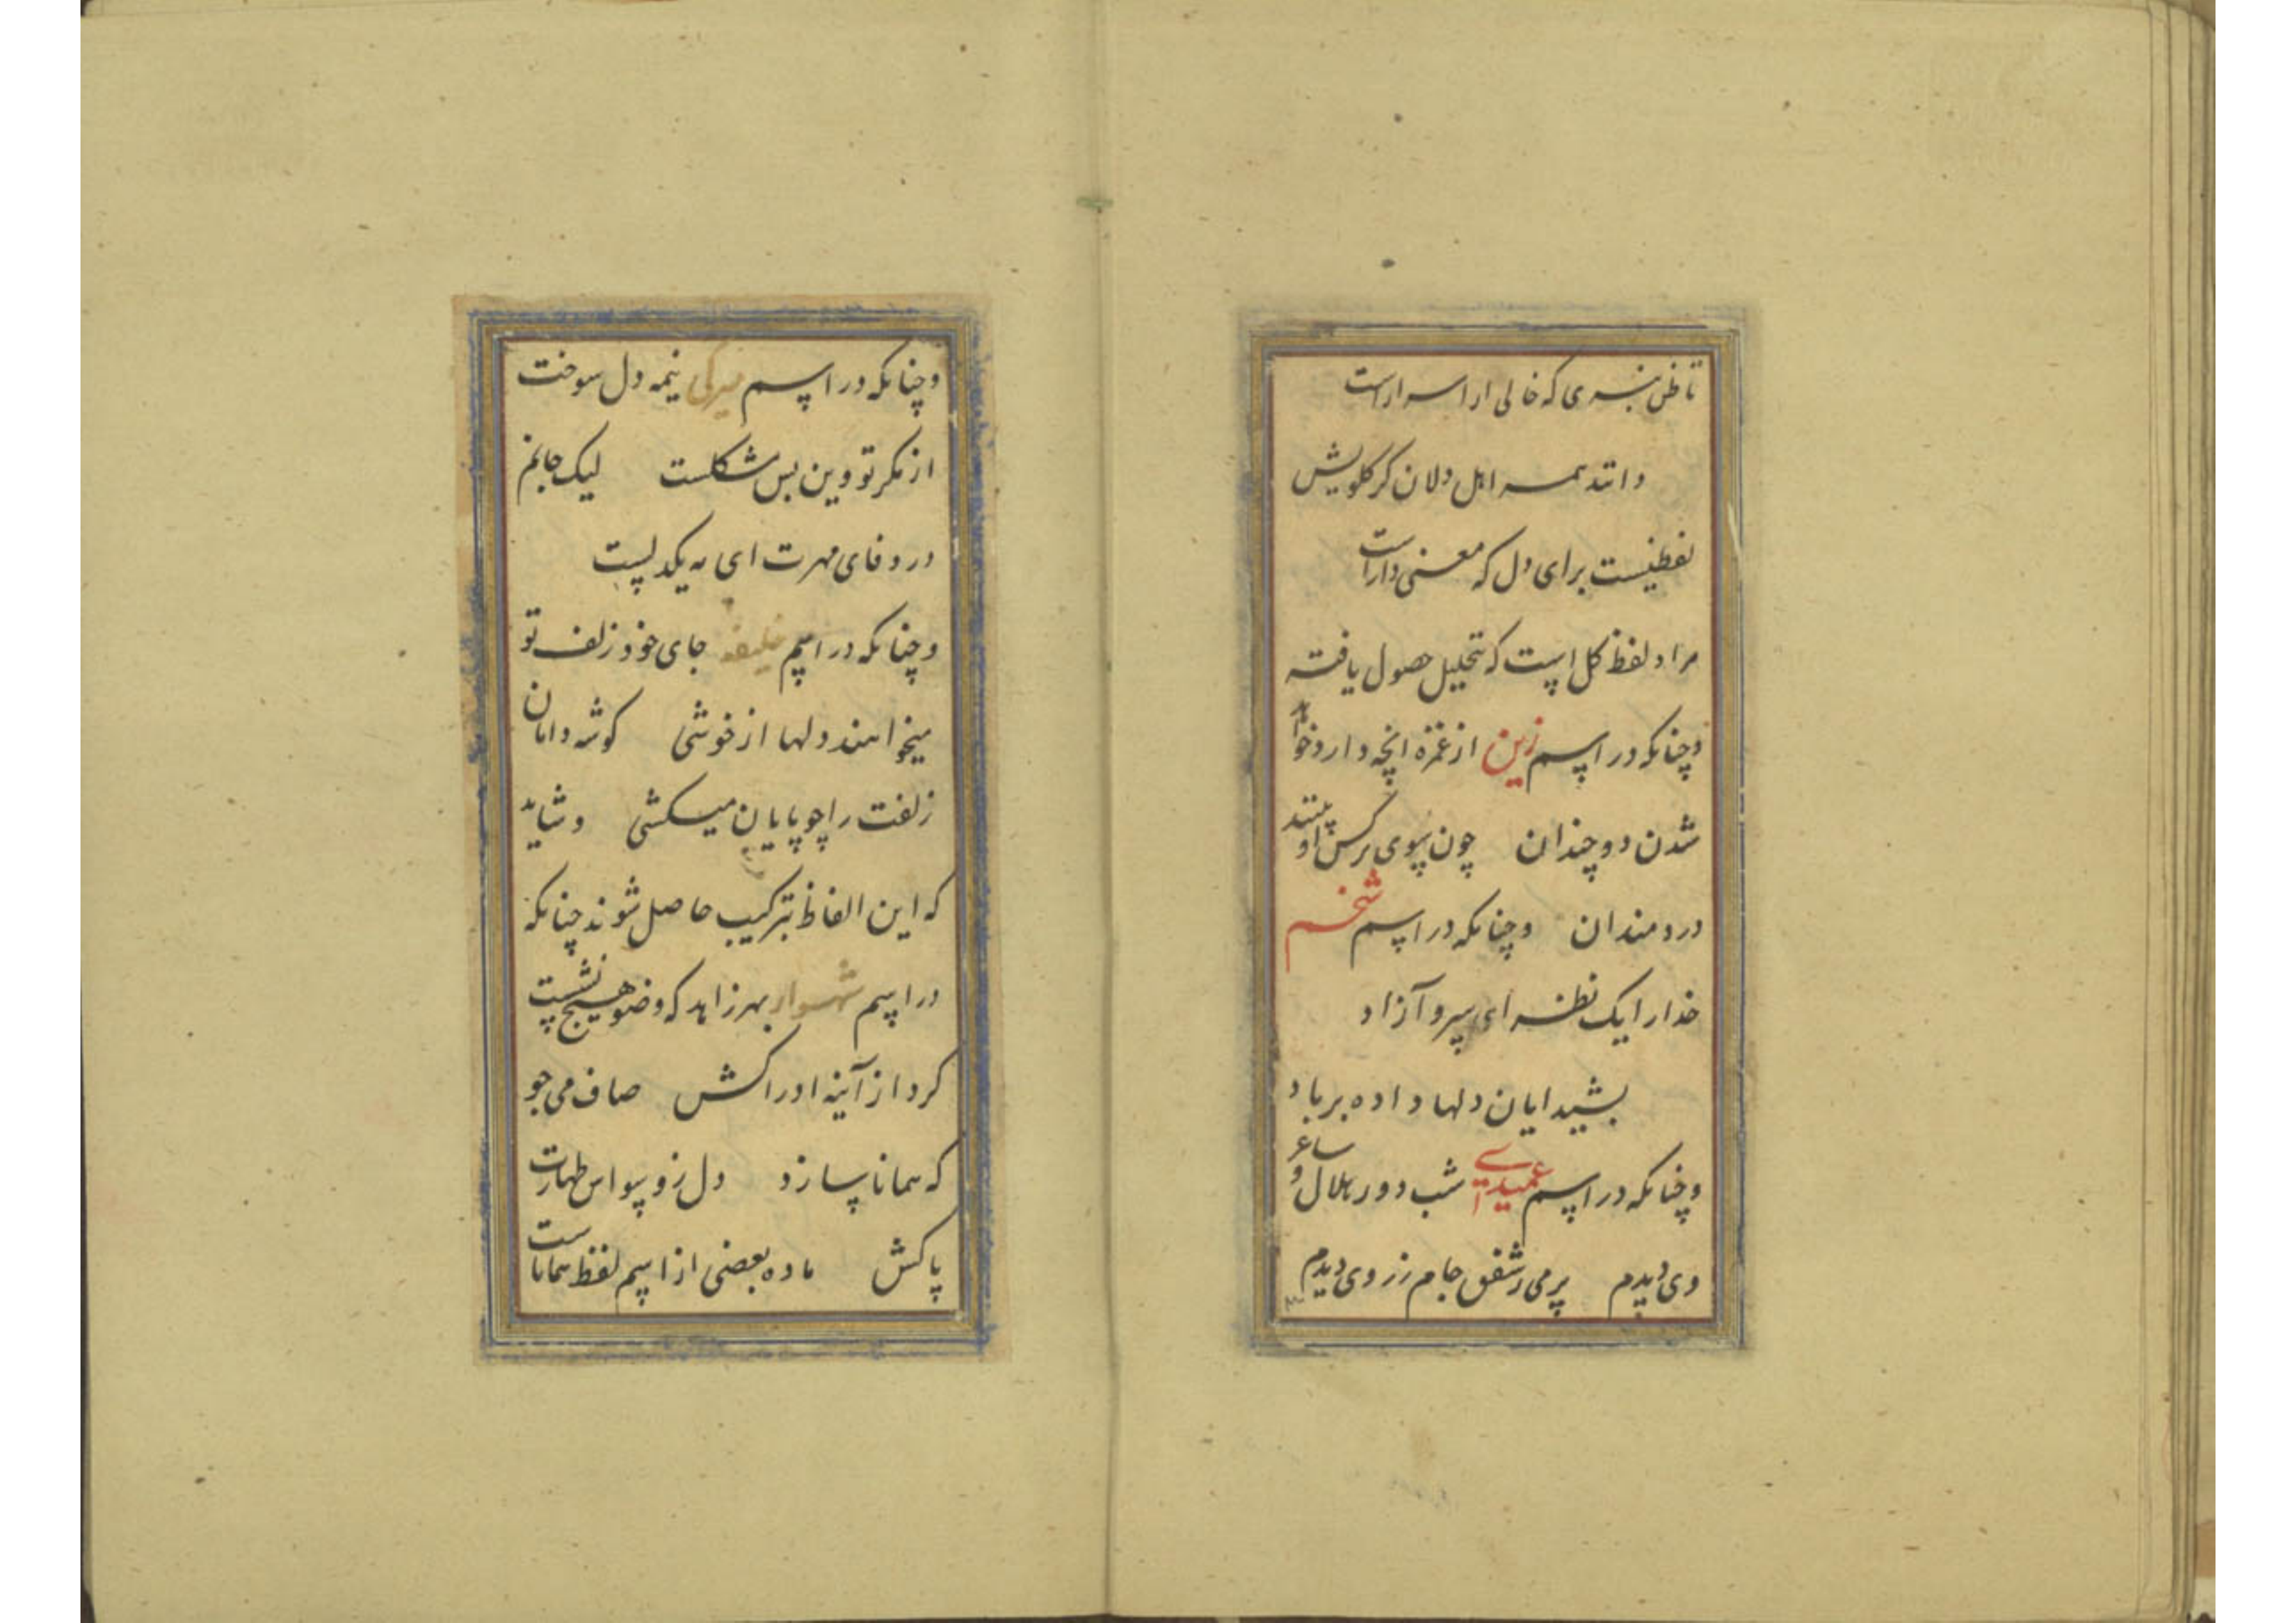 تا ظن نبری که خالی از اسرارست
دانند همه اهل دلان کز کلویش
لفظیست برای دل که معنی دارست
مراد لفظ کل است که بتحلیل حصول یافته
و چنانکه در اسم زین از غمزه انچه دارد خواهد
شدن دو چندان چون سوی نرکس او بینند
دردمندان و چنانکه در اسم
خدارا یک نظر ای سرو آزاد
بشیدایان دلها داده بر باد
و چنانکه در اسم عمیدی شب دور هلال و ساغر
وی دیدم پر می ز شفق جام زر وی دیدم
و چنانکه در اسم میرکی نیمه دل سوخت
از مکر تو وین بس مشکلست لیک جانم
در وفای مهرت ای مه یکدلیست
و چنانکه در اسم خلیفه جای خود زلف تو
میخواهند دلها از خوشی کوشه دامان
زلفت را چو پایان میکشی و شاید
که این الفاظ بترکیب حاصل شوند چنانکه
در اسم شهسوار بهر زاهد که وضو هیچ نشست
کرد از آینه ادراکش صاف می جو
که همانا سازد دل ز وسواس طهارت
پاکش ماده بعضی از اسم لفظ هماناست